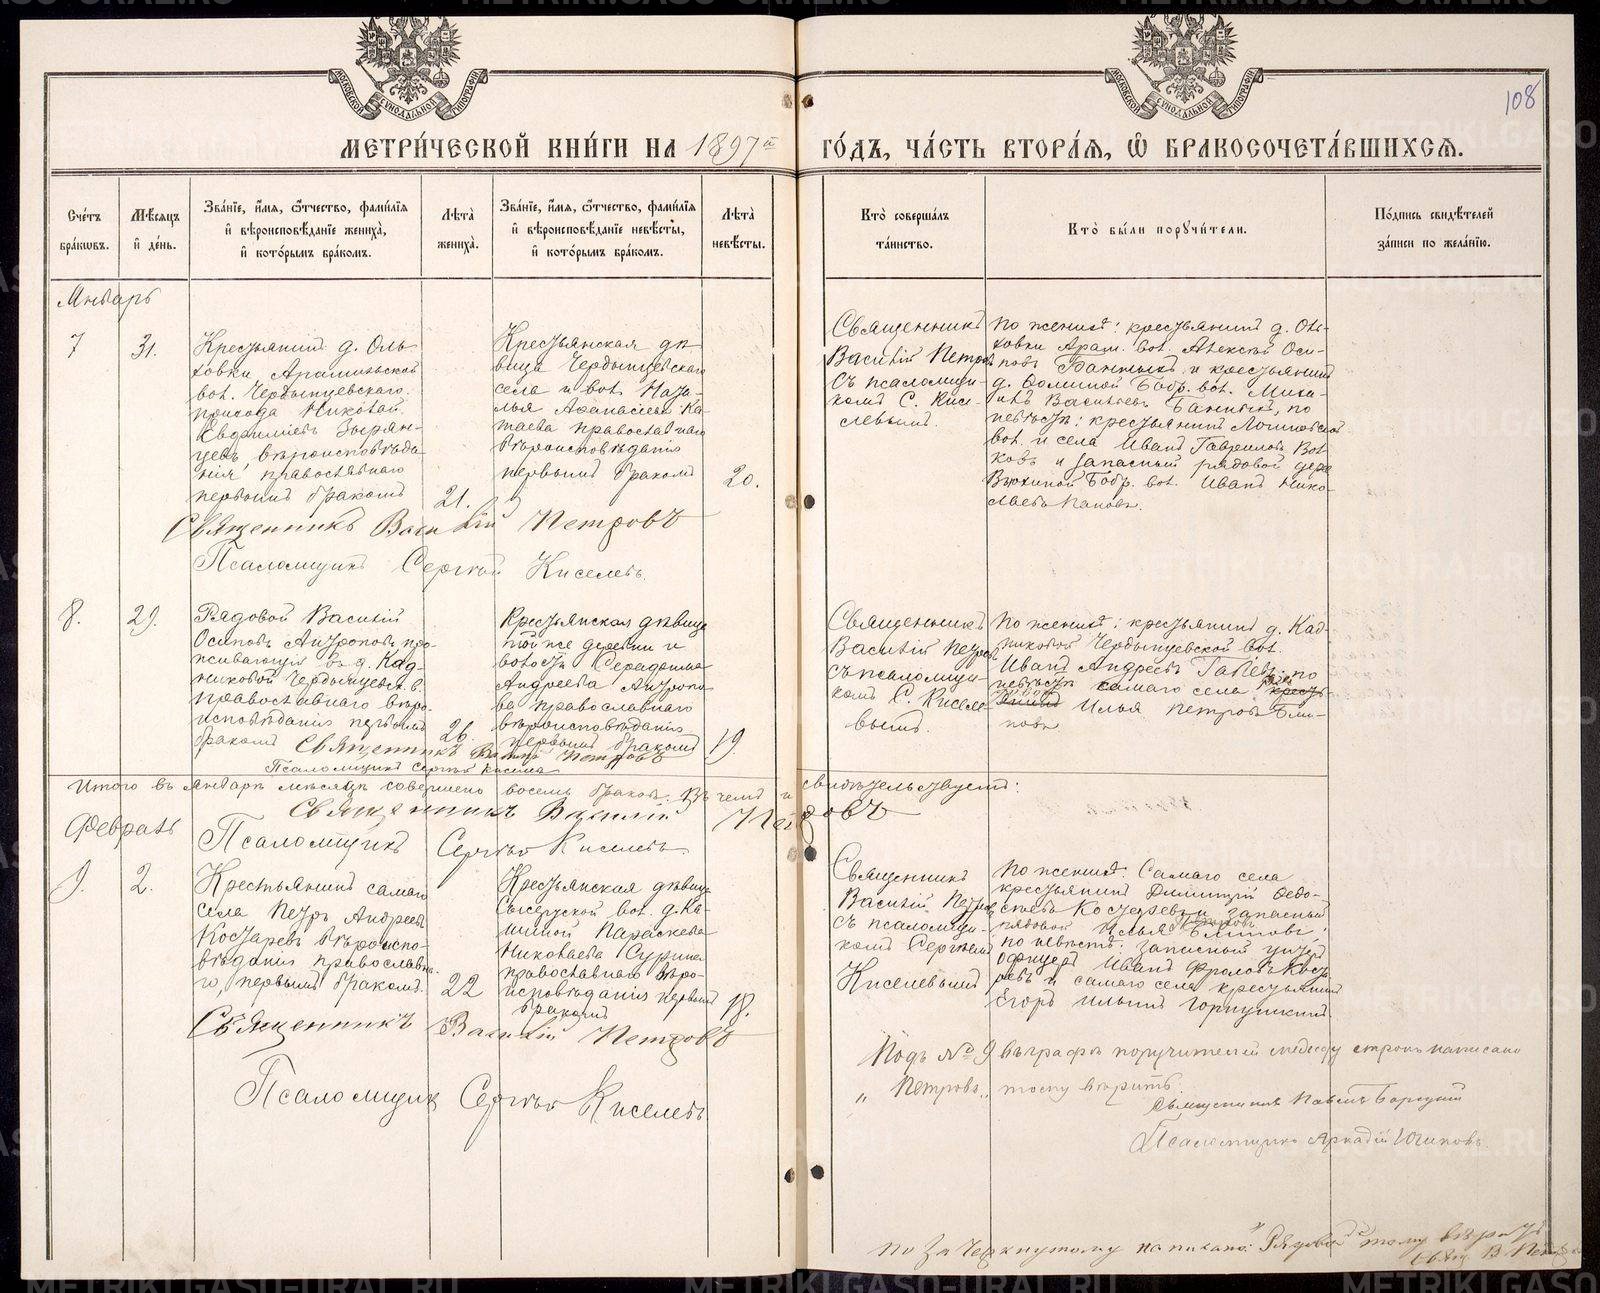 МОСКОВСКОЙ СУНОДАЛЬНОЙ ТИПОГРАФІИ
МОСКОВСКОЙ СУНОДАЛЬНОЙ ТИПОГРАФІИ
108
МЕТРИ́ЧЕСКОЙ КНИ́ГИ НА 1897й ГО́ДЪ, ЧА́СТЬ ВТОРА́Я, Ѡ҆ БРАКОСОЧЕТА́ВШИХСЯ.
Сче́тъ
бра́кѡвъ.
Мѣ́сяцъ
и҆ де́нь.
Зва́нїе, и҆́мя, ѻ҆́тчество, фами́лїя
и҆ вѣроисповѣ́данїе жениха̀,
и҆ кото́рымъ бра́комъ.
Лѣ́та
жениха̀.
Зва́нїе, и҆́мя, ѻ҆́тчество, фами́лїя
и҆ вѣроисповѣ́данїе невѣ́сты,
и҆ кото́рымъ бра́комъ.
Лѣ́та
невѣ́сты.
Кто̀ соверша́лъ
та́инство.
Кто̀ бы́ли порꙋчи́тели.
По́дпись свидѣ́телей
за́писи по жела́нїю.
Январь
7
31.
Крестьянинъ д. Оль-
ховки Арамильской
вол. Чердынцевскаго
прихода Николай
Евфиміевъ Зырян-
цевъ вѣроисповѣда-
нія православнаго
первымъ бракомъ
21.
Крестьянская дѣ-
вица Чердынцевскаго
села и вол. Ната-
лья Афанасіева Ка-
таева православнаго
вѣроисповѣданія
первымъ бракомъ
20.
Священникъ
Василій Петровъ
съ псаломщи-
комъ С. Кисе-
левымъ.
По женихѣ: крестьянинъ д. Оль-
ховки Арам. вол. Алексѣй Оси-
повъ и крестьянинъ
д. Бобр. вол. Миха-
илъ Васильевъ по
невѣстѣ: крестьянинъ
вол. и села Иванъ Гавриловъ Вол-
ковъ и запасный рядовой дер.
Бобр. вол. Иванъ Нико-
лаевъ Пановъ.
Священникъ Василій Петровъ
Псаломщикъ Сергѣй Киселевъ.
8.
29.
Рядовой Василій
Осиповъ Антроповъ, про-
живающій въ д. Кад-
никовой Чердынцевск. в.
православнаго вѣро-
исповѣданія первымъ
бракомъ
26.
Крестьянская дѣвица
той же деревни и
волости Серафима
Андреева Антропо-
ва православнаго
вѣроисповѣданія
первымъ бракомъ
19.
Священникъ
Василій Петровъ
съ псаломщи-
комъ С. Киселе-
вымъ.
По женихѣ: крестьянинъ д. Кад-
никовой Чердынцевской вол.
Иванъ Андреевъ по
невѣстѣ самаго села
Илья Петровъ Бли-
новъ
Священникъ Василій Петровъ
Псаломщикъ Сергѣй Киселевъ
Итого въ январѣ мѣсяцѣ совершено восемь браковъ. Въ чемъ и свидѣтельствуетъ:
Священникъ Василій Петровъ
Псаломщикъ Сергѣй Киселевъ.
Февраль
9.
2.
Крестьянинъ самаго
села Петръ Андреевъ
Костаревъ вѣроиспо-
вѣданія православна-
го, первымъ бракомъ.
22
Крестьянская дѣвица
Сысертской вол. д. Ка-
шиной Параскева
Николаева Сурина
православнаго вѣро-
исповѣданія первымъ
бракомъ
18.
Священникъ
Василій Петровъ
съ псаломщи-
комъ Сергѣемъ
Киселевымъ
По женихѣ: Самаго села
крестьянинъ Димитрій Федо-
сѣевъ и запасный
Петровъ
рядовой Илья Блиновъ;
по невѣстѣ: запасный унтеръ
офицеръ Иванъ Фроловъ Коста-
ревъ и самаго села крестьянинъ
Егоръ Ильинъ
Священникъ Василій Петровъ
Псаломщикъ Сергѣй Киселевъ
Подъ № 9 въ графѣ поручителей между строкъ написано
„Петровъ„ тому вѣрить.
Священникъ Павелъ
Псаломщикъ Аркадій
По зачеркнутому написано: „Рядовой“ тому вѣрить
Свящ. В. Петровъ
METRIKI.GASO-URAL.RU